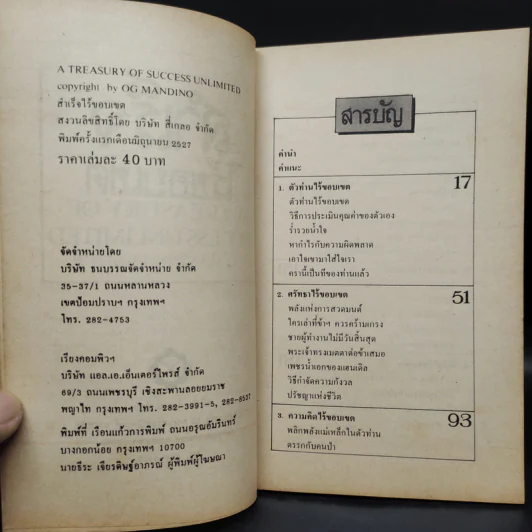 A TREASURY OF SUCCESS UNLIMITED
copyright by OG MANDINO
สำเร็จไร้ขอบเขต
สงวนลิขสิทธิ์โดย บริษัท สี่เกลอ จำกัด
พิมพ์ครั้งแรกเดือนมิถุนายน 2527
ราคาเล่มละ 40 บาท
จัดจำหน่ายโดย
บริษัท ธนบรรณจัดจำหน่าย จำกัด
35-37/1 ถนนหลานหลวง
เขตป้อมปราบฯ กรุงเทพฯ
โทร. 282-4753
เรียงคอมพิวฯ
บริษัท แอล.เอ.เอ็นเตอร์ไพรส์ จำกัด
69/3 ถนนเพชรบุรี เชิงสะพานลอยยมราช
พญาไท กรุงเทพฯ โทร. 282-3991-5, 282-8537
พิมพ์ที่ เรือนแก้วการพิมพ์ ถนนอรุณอัมรินทร์
บางกอกน้อย กรุงเทพฯ 10700
นายธีระ เขียรดิษฐ์อาภรณ์ ผู้พิมพ์ผู้โฆษณา
สารบัญ
คำนำ
คำแนะ
1. ตัวท่านไร้ขอบเขต 17
ตัวท่านไร้ขอบเขต
วิธีการประเมินคุณค่าของตัวเอง
ร่ำรวยน้ำใจ
หากำไรกับความผิดพลาด
เอาใจเขามาใส่ใจเรา
ครานี้เป็นทีของท่านแล้ว
2. ศรัทธาไร้ขอบเขต 51
พลังแห่งการสวดมนต์
ใครเล่าที่ข้าฯ ควรคร้ามเกรง
ชายผู้ทำงานไม่มีวันสิ้นสุด
พระเจ้าทรงเมตตาต่อข้าเสมอ
เพชรน้ำเอกของแฮนเดิล
วิธีกำจัดความกังวล
ปรัชญาแห่งชีวิต
3. ความคิดไร้ขอบเขต 93
พลิกพลังแม่เหล็กในตัวท่าน
ตรรกกับคนป่า